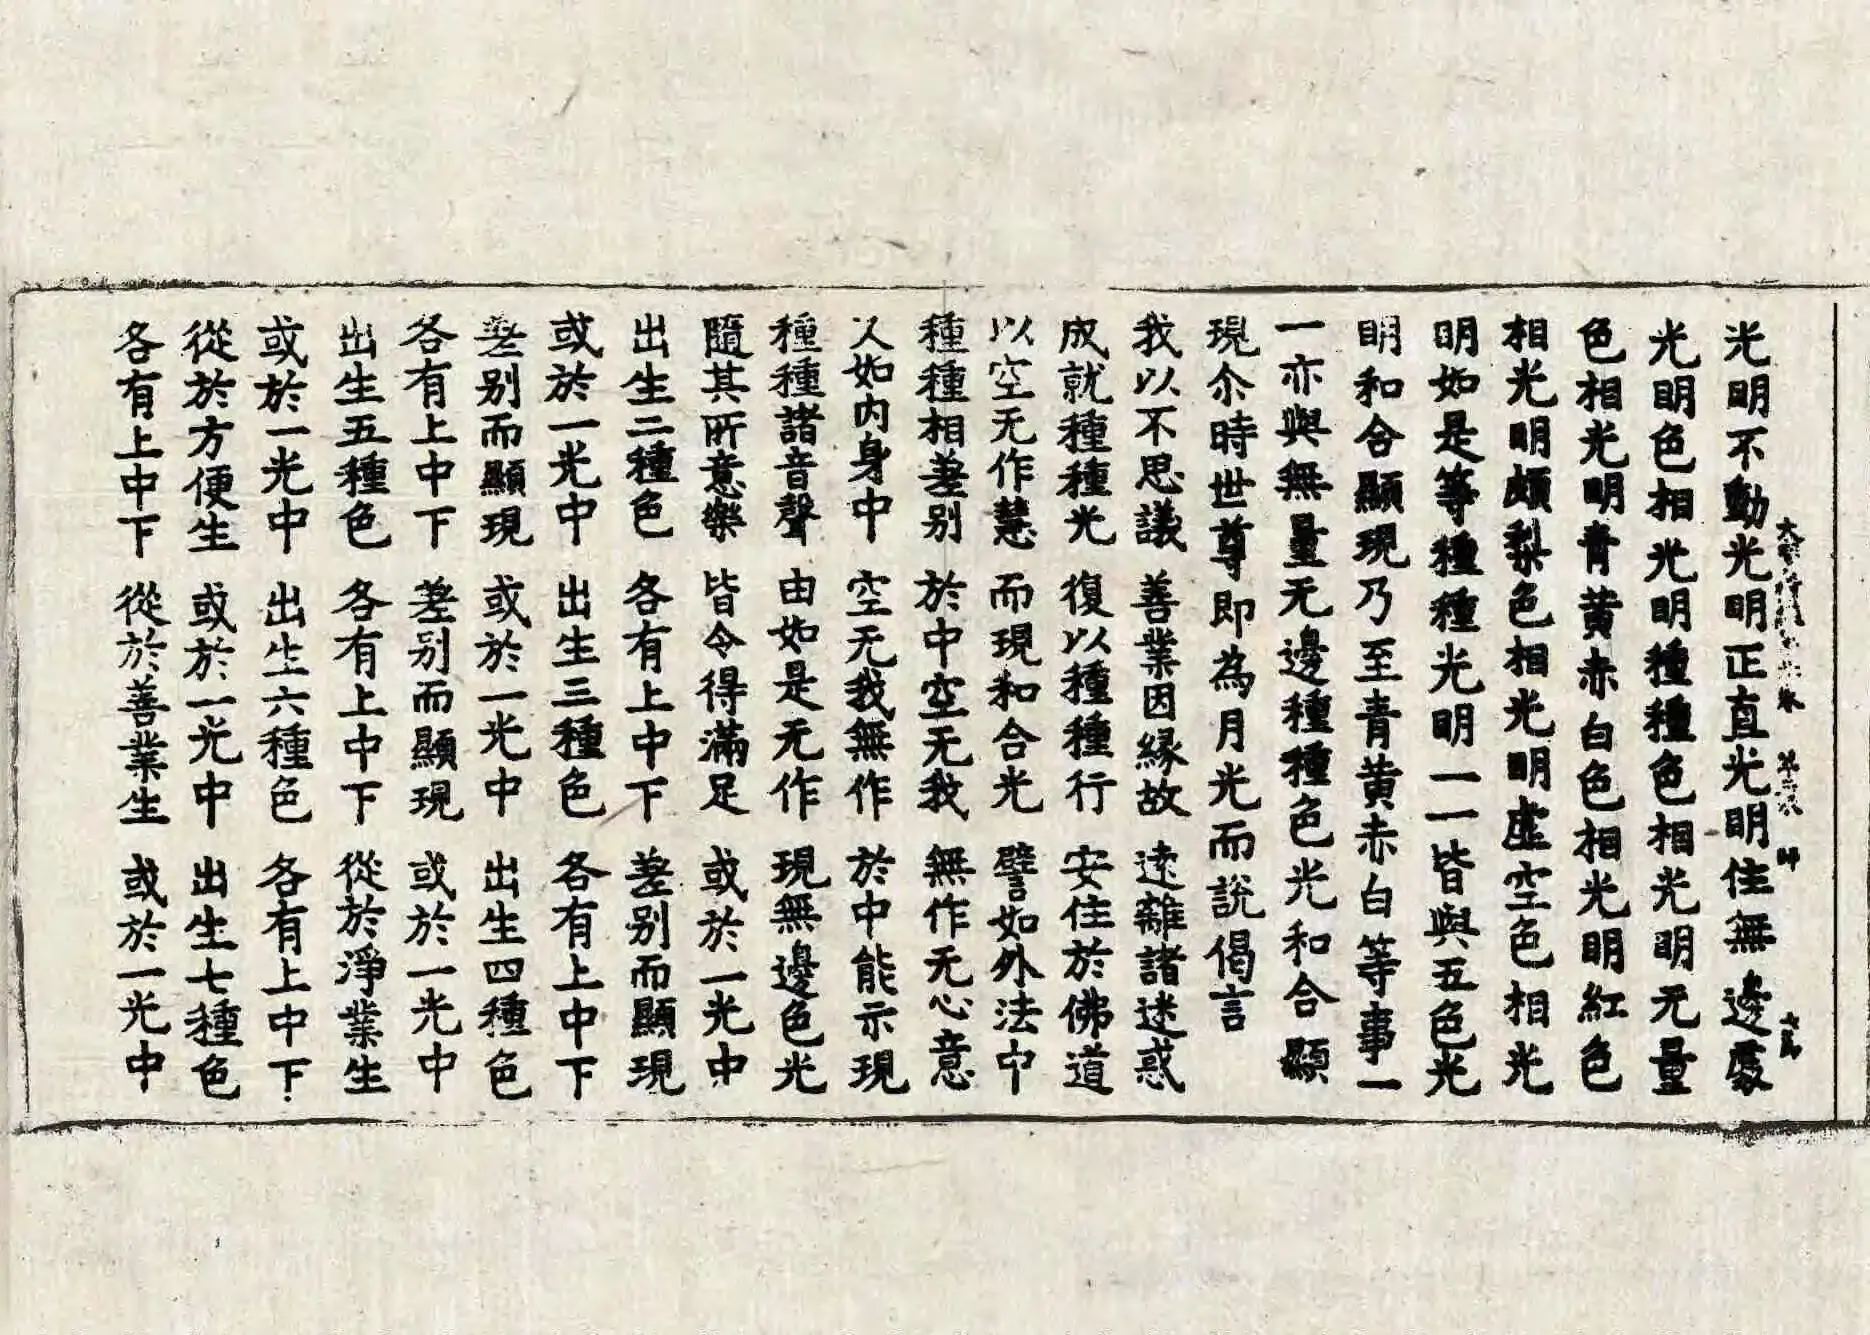 光明不動光明正直光明住無邊處
光明色相光明種種色相光明无量
色相光明青黄赤白色相光明紅色
相光明頗梨色相光明虛空色相光
明如是等種種光明一一皆與五色光
明和合顯現乃至青黄赤白等事一
一亦與無量无邊種種色光和合顯
現尒時世尊即為月光而說偈言
我以不思議 善業因緣故 遠離諸迷惑
成就種種光 復以種種行 安住於佛道
以空无作慧 而現和合光 譬如外法中
種種相差别 於中空无我 無作无心意
人如内身中 空无我無作 於中能示現
種種諸音聲 由如是无作 現無邊色光
隨其所意樂 皆令得滿足 或於一光中
出生二種色 各有上中下 差别而顯現
或於一光中 出生三種色 各有上中下
差别而顯現 或於一光中 出生四種色
各有上中下 差别而顯現 或於一光中
出生五種色 各有上中下 從於淨業生
或於一光中 出生六種色 各有上中下
從於方便生 或於一光中 出生七種色
各有上中下 從於善業生 或於一光中